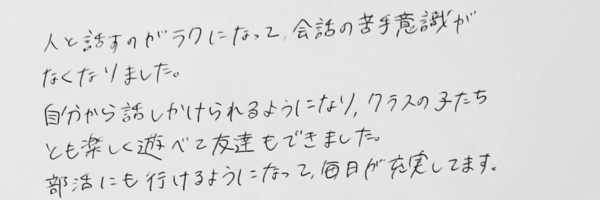 人と話すのがラクになって、会話の苦手意識が
なくなりました。
自分から話しかけられるようになり、クラスの子たち
とも楽しく遊べて友達もできました。
部活にも行けるようになって、毎日が充実してます。